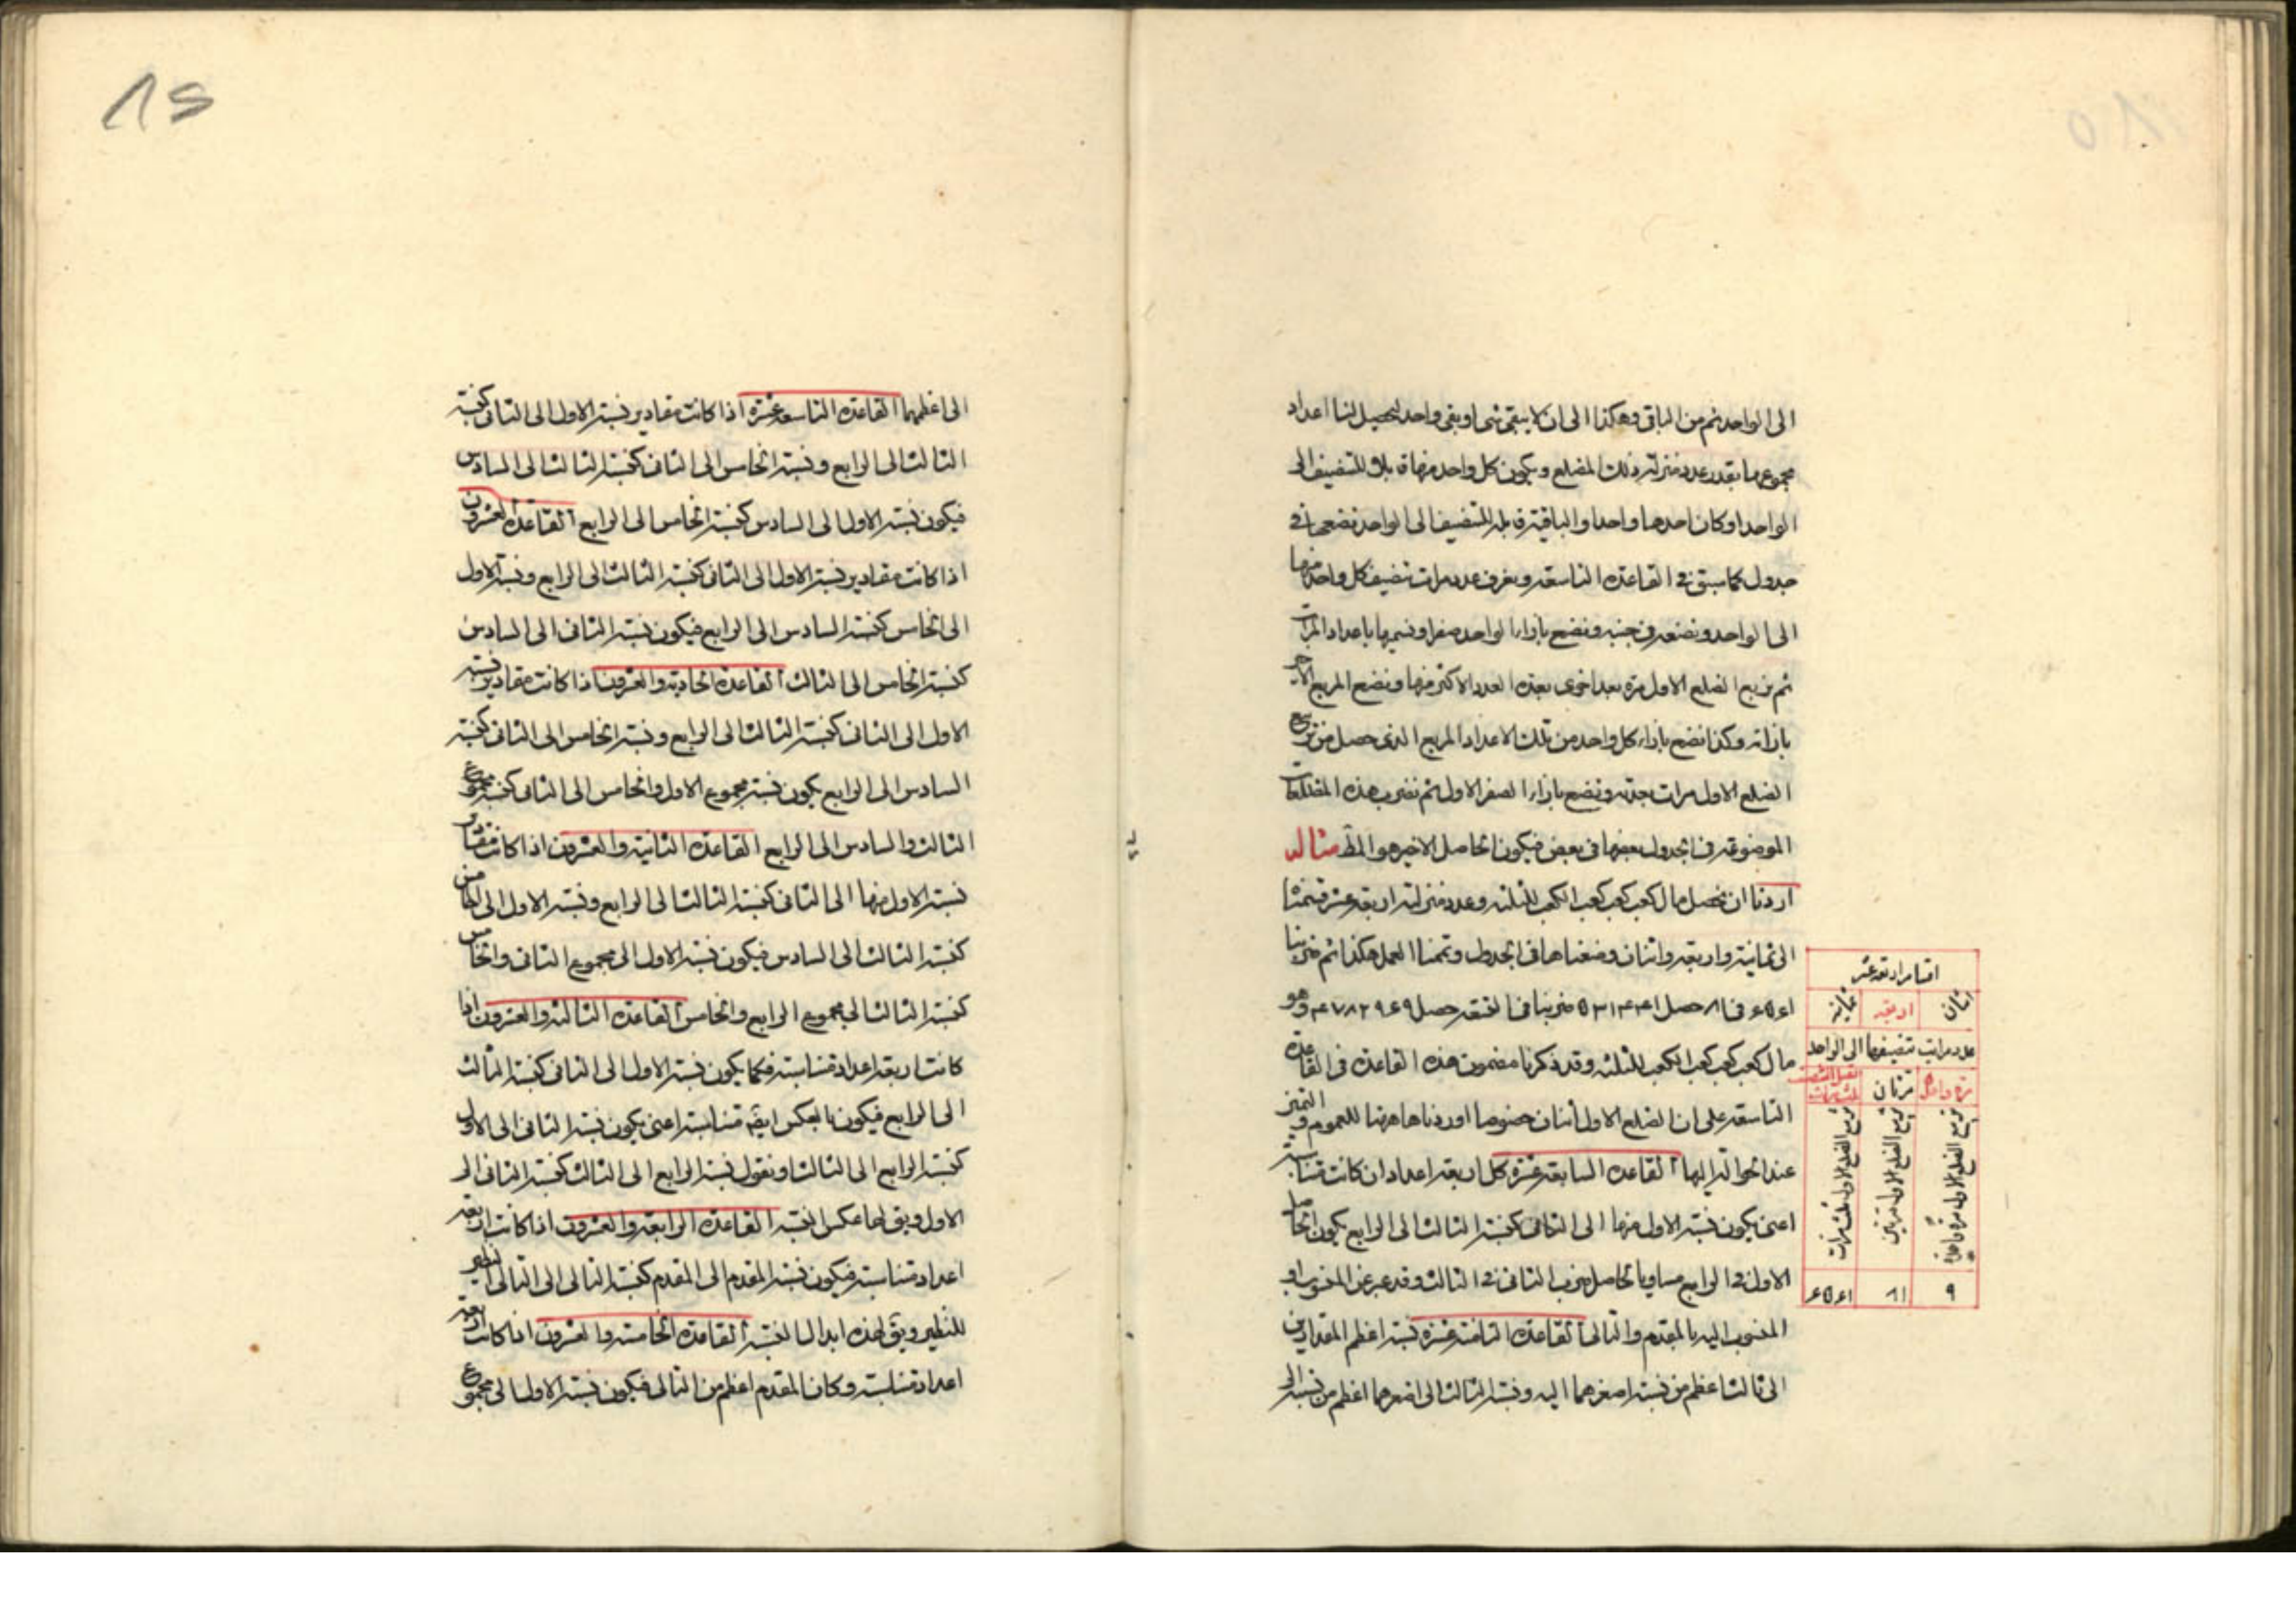 الى الواحد ثم من الباقى وهكذا الى ان لا يبقى شى او يبقى واحد ليحصل لنا اعداد
مجموعها بقدر عدد منزلة ذلك المضلع ويكون كل واحد منها قابلا للتنصيف الى
الواحد او كان احدها واحدا والباقية قابلة للتنصيف الى الواحد نضعها فى
جدول كما سبق فى القاعدة التاسعة ونعرف عدد مرات تنصيف كل واحد منها
الى الواحد ونضعه فى جنبه ونضع بازاء الواحد صفرا ونسميها باعداد المرات
ثم نربع الضلع الاول مرة بعد اخرى بعدة العدد الاكثر منها ونضع المربع الاخير
بازائه وكذا نضع بازاء كل واحد من تلك الاعداد المربع الذى حصل من تربيع
الضلع الاول مرات بعدته ونضع بازاء الصفر الاول ثم نضرب هذه المضلعات
الموضوعة فى الجدول بعضها فى بعض فيكون الحاصل الاخير هو المط مثاله
اردنا ان نحصل مال كعب كعب كعب الكعب للثلثة وعدد منزلته اربعة عشر قسمناها
الى ثمانية واربعة واثنان وضعناها فى الجدول وتممنا العمل هكذا ثم ضربنا
٦٥٦١ فى ٨١ حصل ٥٣١۴۴١ ضربنا فى التسعة حصل ۴٧٨٢٩٦٩ وهو
مال كعب كعب كعب الكعب للثلثة وقد ذكرنا مضمون هذه القاعدة فى القاعدة
التاسعة على ان الضلع الاول اثنان خصوصا اوردناها هنا للعموم و التميز
عند الحوالة اليها القاعدة السابعة عشرة كل اربعة اعداد ان كانت متناسبة
اعنى يكون نسبة الاول منها الى الثانى كنسبة الثالث الى الرابع يكون الحاصل
الاول فى الرابع مساويا لحاصل ضرب الثانى فى الثالث وقد عبر عن المنسوب او
المنسوب اليه بالمقدم والتالى القاعدة الثامنة عشرة نسبة اعظم المقدارين
الى ثالث اعظم من نسبة اصغرهما اليه ونسبة الثالث الى اصغرهما اعظم من نسبته الى
اقسام اربعة عشر
اثنان اربعة ثمانية
عدد مراتب تنصيفها الى الواحد
مرة واحدة مرتان
تربيع الضلع الاول مرة واحدة
تربيع الضلع الاول مرتين
تربيع الضلع الاول ثلث مرات
٩ ٨١ ٦٥٦١
الى اعظمهما القاعدة التاسعة عشرة اذا كانت مقادير نسبة الاول الى الثانى كنسبة
الثالث الى الرابع ونسبة الخامس الى الثانى كنسبة الثالث الى السادس
فيكون نسبة الاول الى السادس كنسبة الخامس الى الرابع القاعدة العشرون
اذا كانت مقادير نسبة الاول الى الثانى كنسبة الثالث الى الرابع ونسبة الاول
الى الخامس كنسبة السادس الى الرابع فيكون نسبة الثانى الى السادس
كنسبة الخامس الى الثالث القاعدة الحادية والعشرون اذا كانت مقادير نسبة
الاول الى الثانى كنسبة الثالث الى الرابع ونسبة الخامس الى الثانى كنسبة
السادس الى الرابع يكون نسبة مجموع الاول والخامس الى الثانى كنسبة مجموع
الثالث والسادس الى الرابع القاعدة الثانية والعشرون اذا كانت مقادير
نسبة الاول منها الى الثانى كنسبة الثالث الى الرابع ونسبة الاول الى الخامس
كنسبة الثالث الى السادس فيكون نسبة الاول الى مجموع الثانى والخامس
كنسبة الثالث الى مجموع الرابع والخامس القاعدة الثالثة والعشرون اذا
كانت اربعة اعداد متناسبة فكما يكون نسبة الاول الى الثانى كنسبة الثالث
الى الرابع فيكون بالعكس ايضا متناسبة اعنى يكون نسبة الثانى الى الاول
كنسبة الرابع الى الثالث او نقول نسبة الرابع الى الثالث كنسبة الثانى الى
الاول ويق لها عكس النسبة القاعدة الرابعة والعشرون اذا كانت اربعة
اعداد متناسبة فيكون نسبة المقدم الى المقدم كنسبة التالى الى التالى النظير
للنظير ويق لهذه ابدال النسبة القاعدة الخامسة والعشرون اذا كانت اربعة
اعداد متناسبة وكان المقدم اعظم من التالى فيكون نسبة الاول الى مجموع